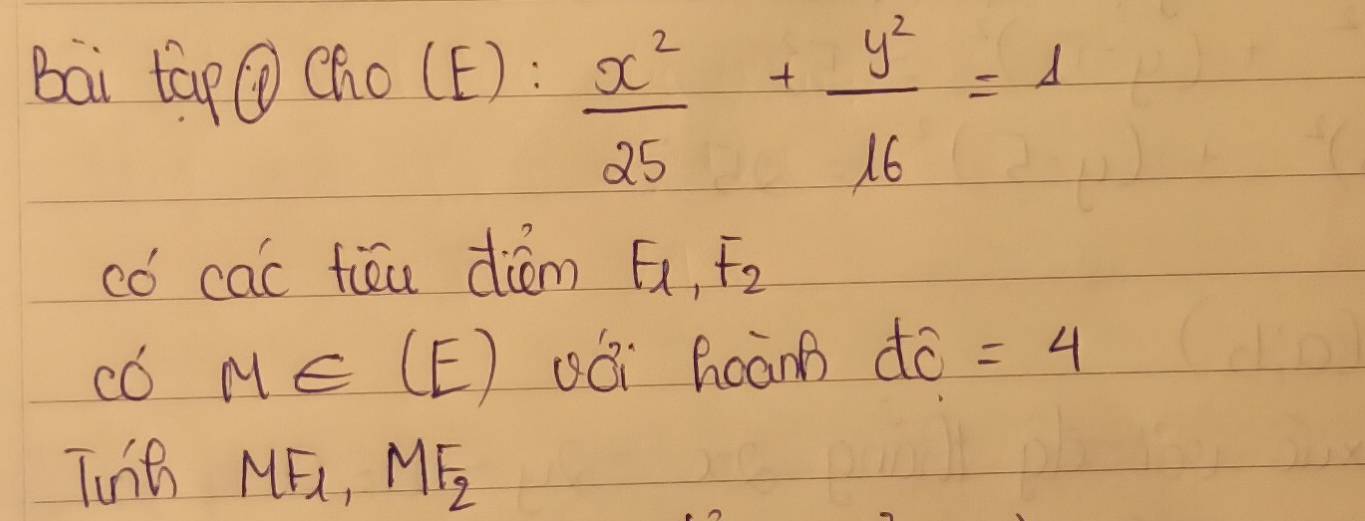 Bài tập ① Cho (E): x²/25 + y²/16 = 1
có các tiêu điểm F1, F2
có M ∈ (E) với hoành độ = 4
Tính MF1, MF2